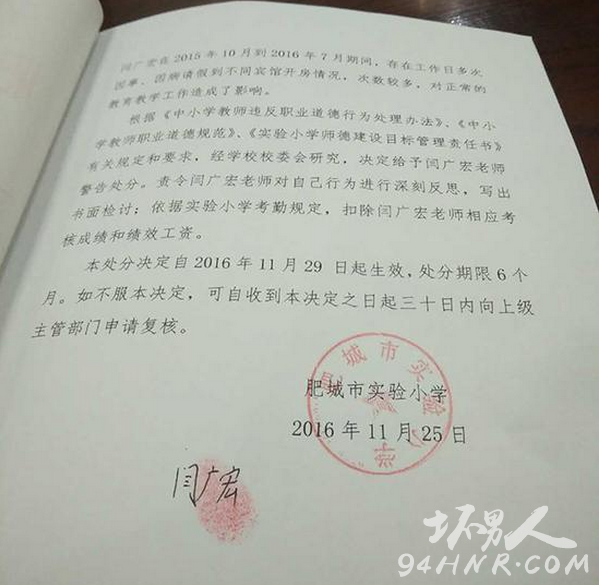 闫广宏在2015年10月到2016年7月期间,存在工作日多次
因事、因病请假到不同宾馆开房情况,次数较多,对正常的
教育教学工作造成了影响。
根据《中小学教师违反职业道德行为处理办法》、《中小
学教师职业道德规范》、《实验小学师德建设目标管理责任书》
有关规定和要求,经学校校委会研究,决定给予闫广宏老师
警告处分。责令闫广宏老师对自己行为进行深刻反思,写出
书面检讨;依据实验小学考勤规定,扣除闫广宏老师相应考
核成绩和绩效工资。
本处分决定自2016年11月29日起生效,处分期限6个
月。如不服本决定,可自收到本决定之日起三十日内向上级
主管部门申请复核。
肥城市实验小学
2016年11月25日
肥城市实验小学
闫广宏
坏男人
94HNR.COM